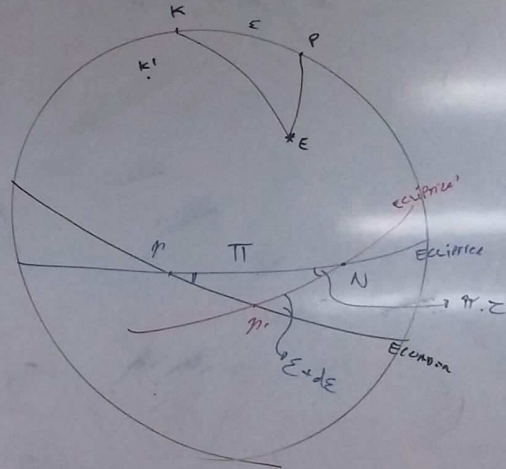 K
ε
P
K'
E
ecliptica'
Π
Ecliptica
N
π.τ
Ecuador
ε+dε